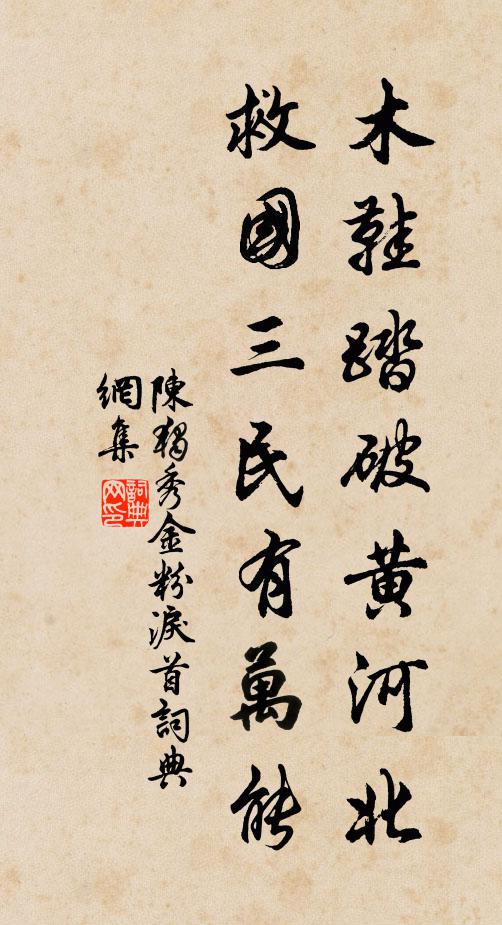 木鞋踏破黄河北
救國三民有萬能
陳獨秀金粉淚首詞典
網集
詞典網印